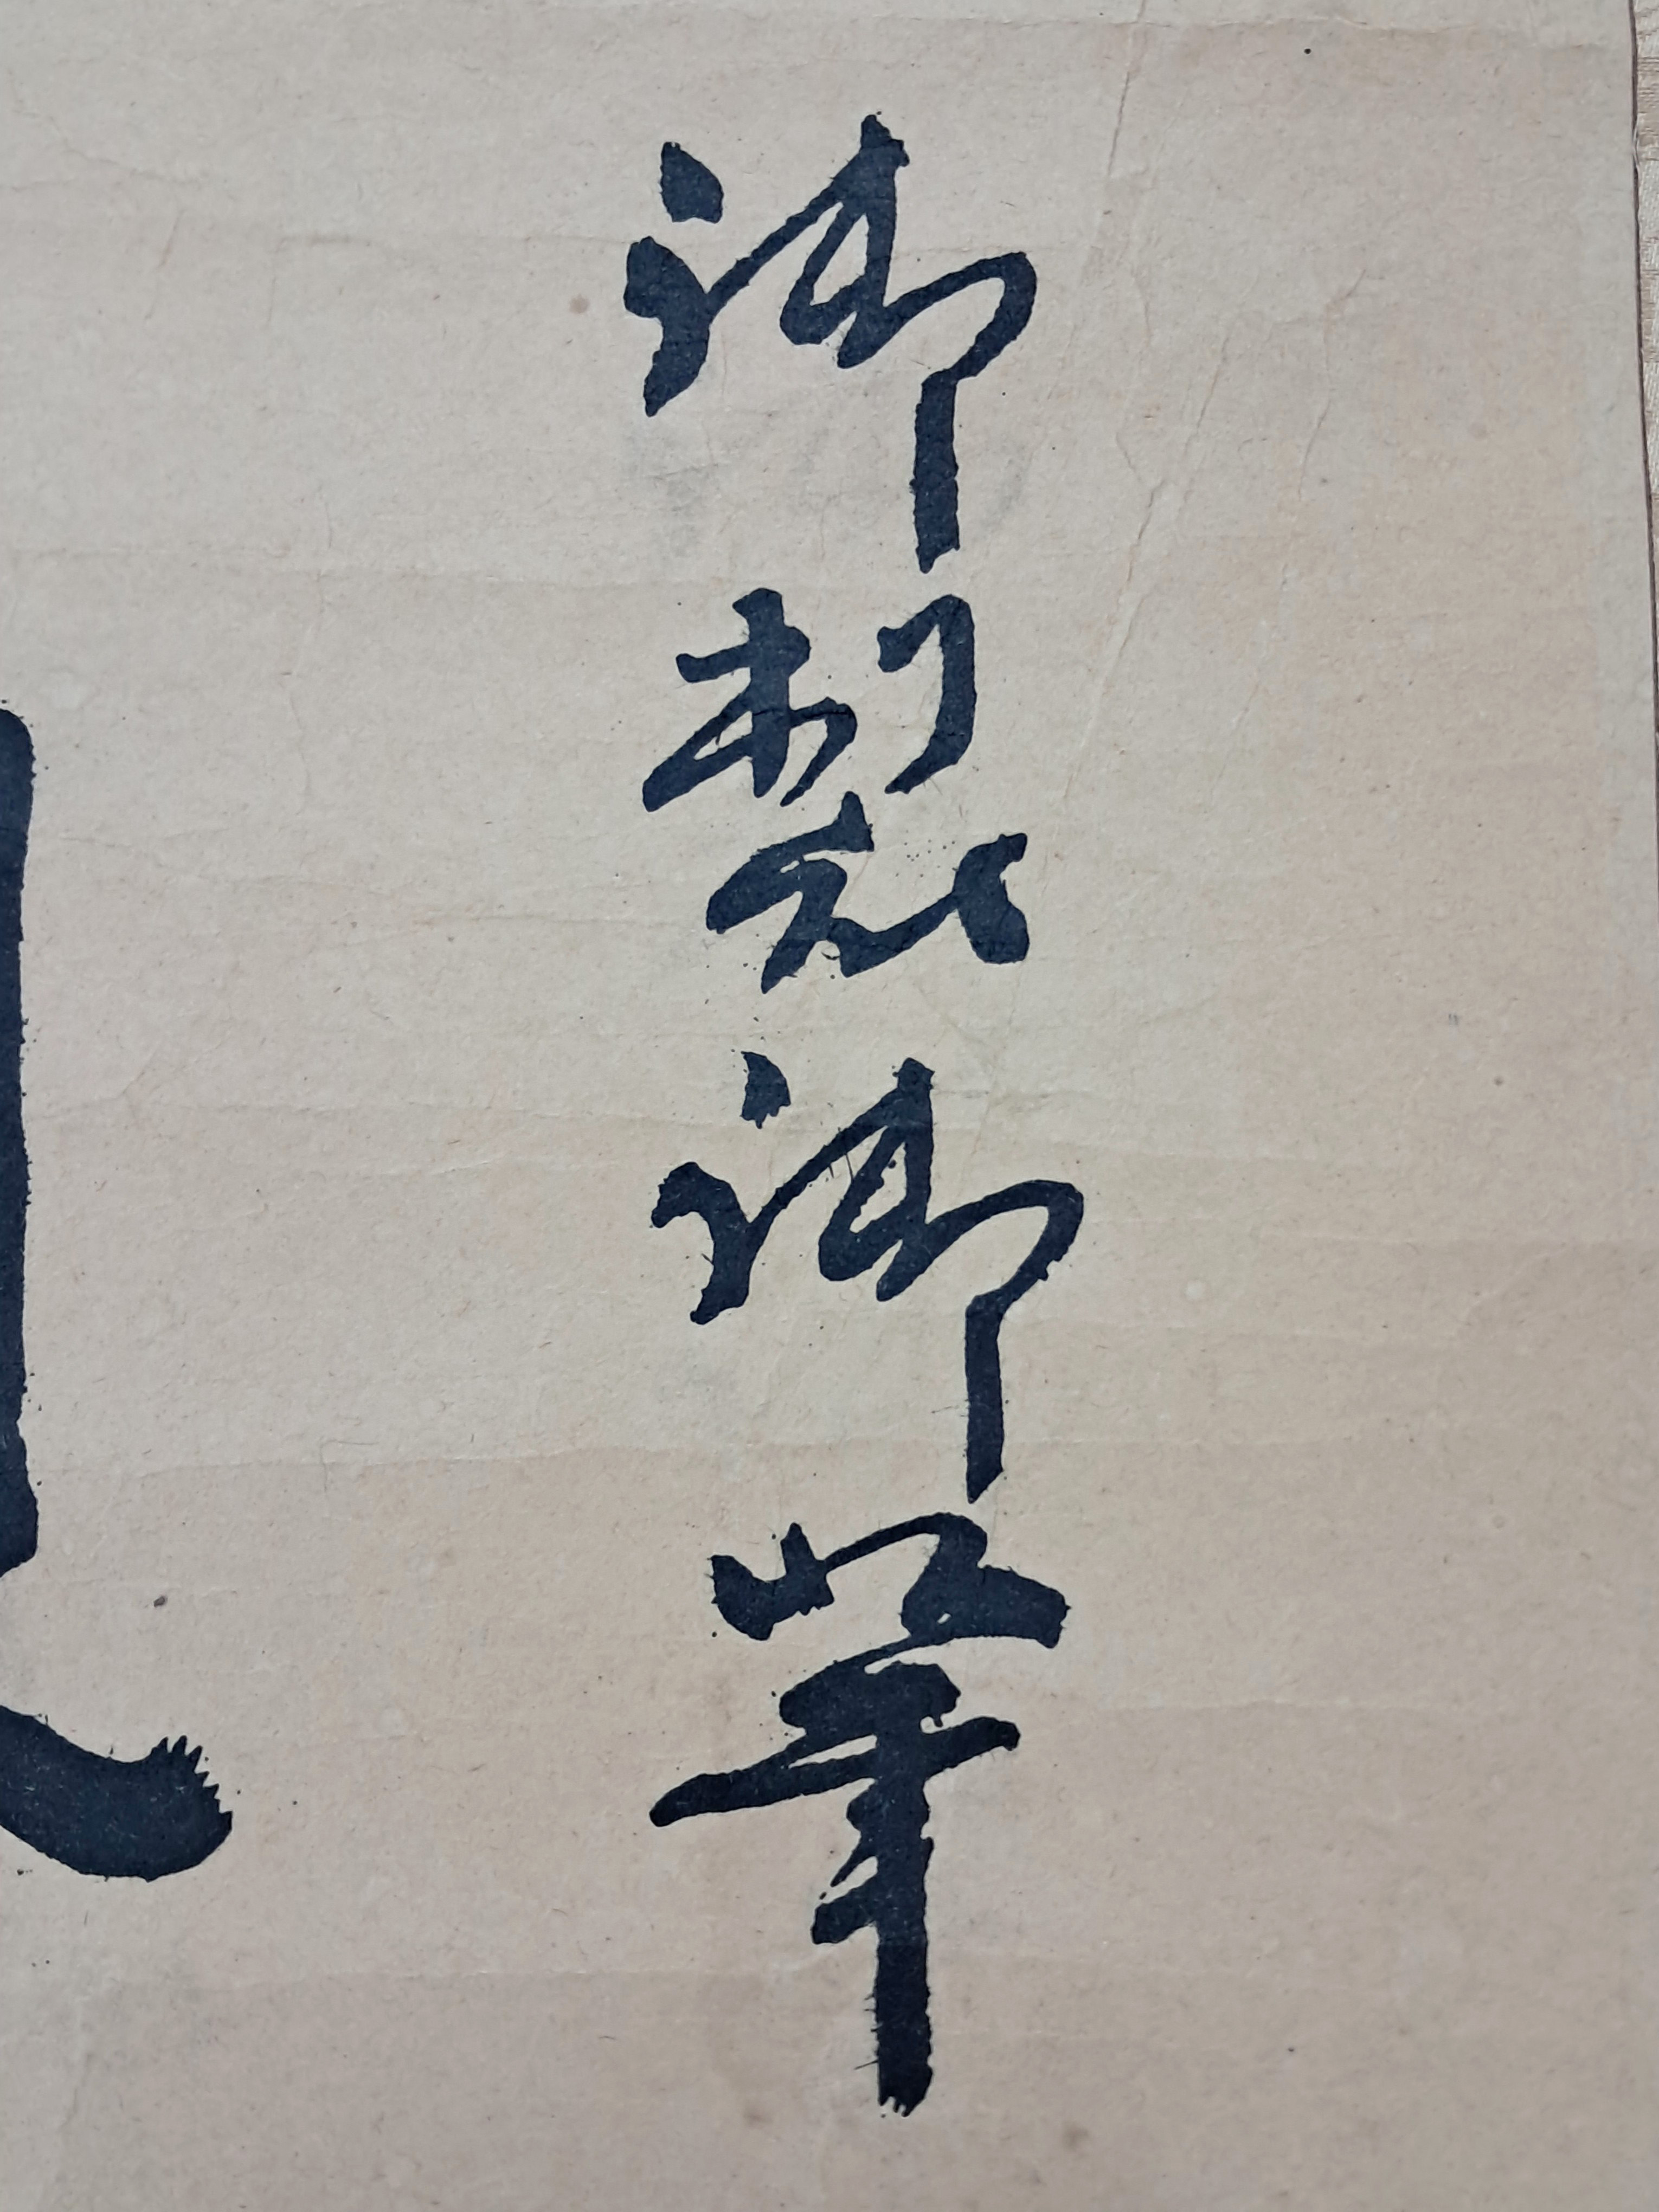 御製御筆